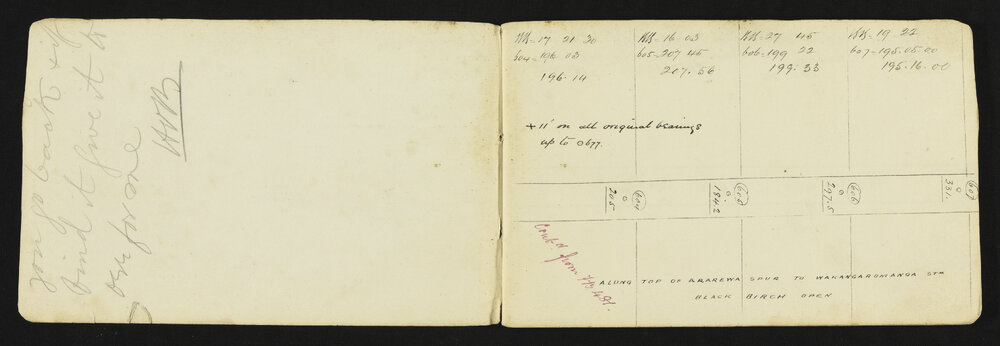 you go back & if
find it give it to
for me
HVB
BK- 17 21 30
604- 196 03
196. 14
BK- 16 03
605- 207 45
207. 56
BK- 27 45
606- 199 22
199. 33
BK- 19 22
607- 195. 05. 00
195. 16. 00
+ 11' on all original bearings
up to 0677.
604
205
605
184.2
606
297.5
607
331.
Cont'd from FB 481.
ALONG TOP OF ARAREWA SPUR TO WAKANGAROMANGA STM
BLACK BIRCH OPEN